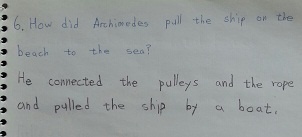 6. How did Archimedes pull the ship on the
beach to the sea?
He connected the pulleys and the rope
and pulled the ship by a boat.